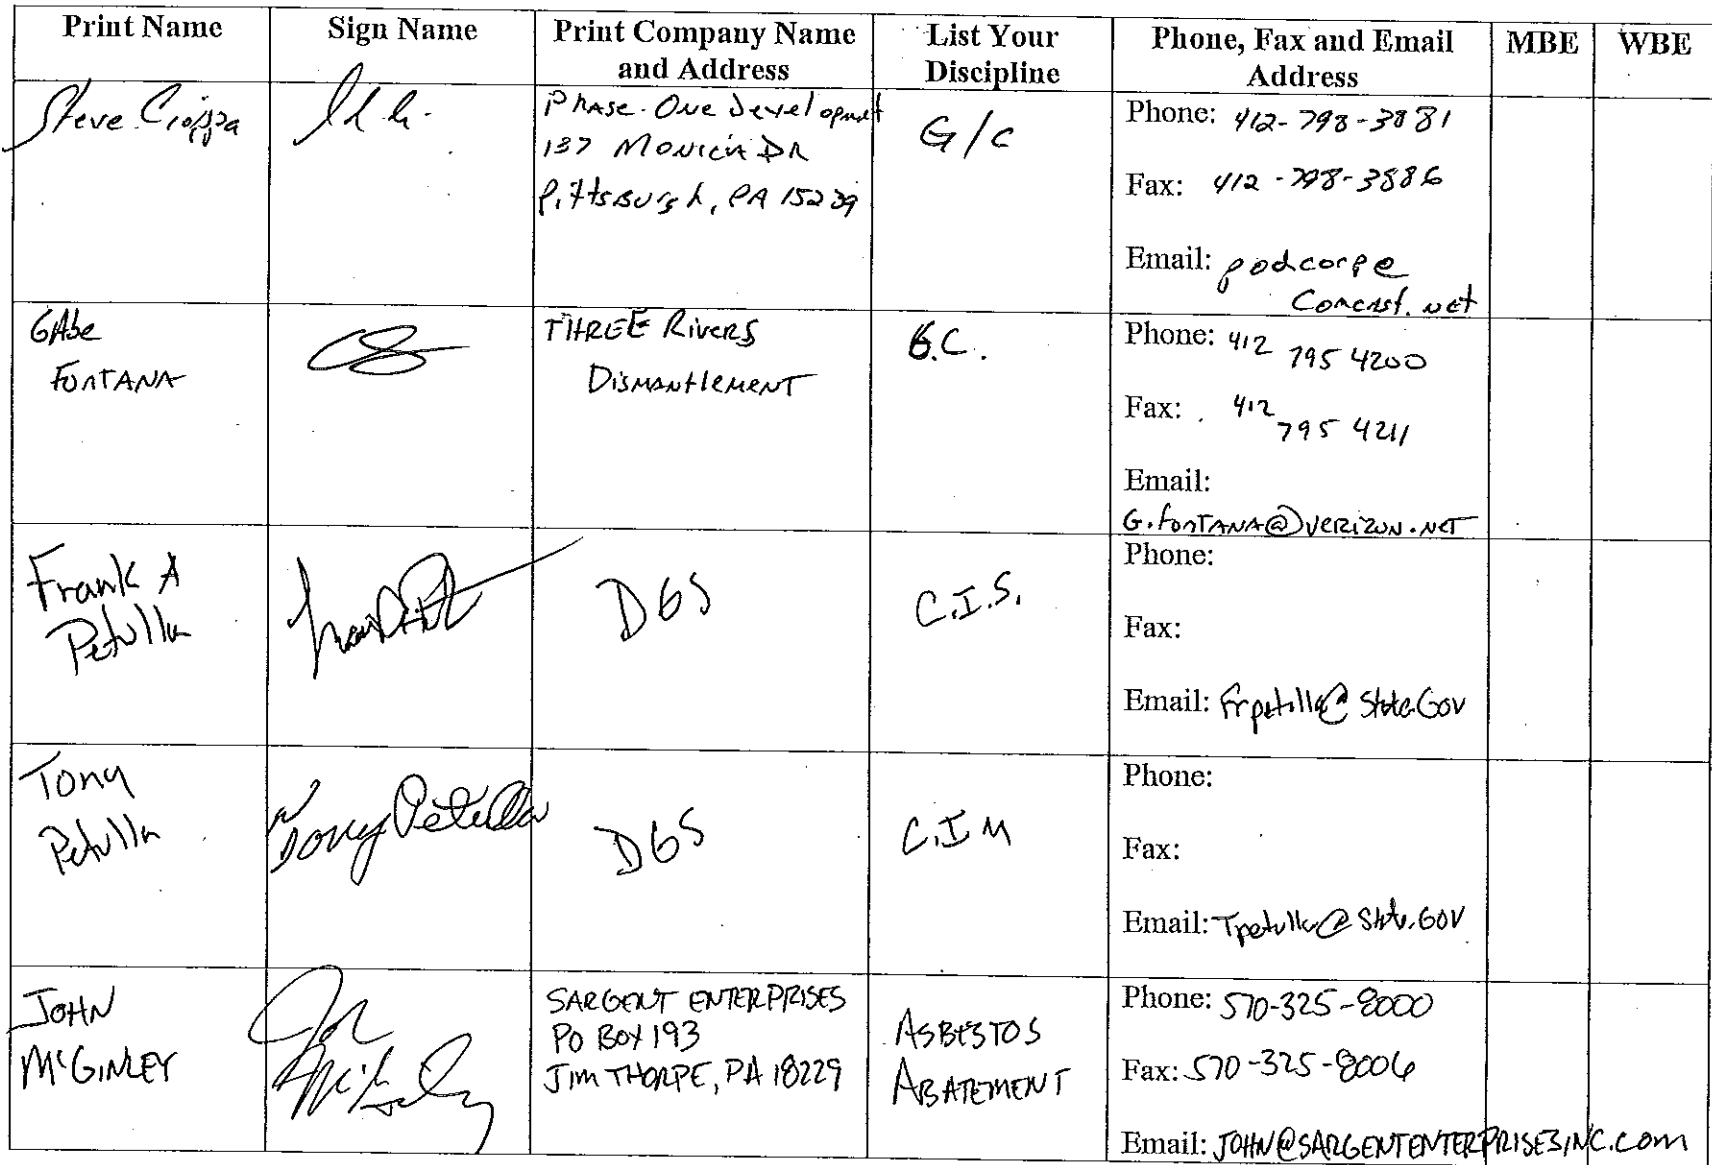 Print Name
Sign Name
Print Company Name
and Address
List Your
Discipline
Phone, Fax and Email
Address
MBE
WBE
Steve Cioppa
Phase One Development
137 Monicia DR
Pittsburgh, PA 15239
G/C
Phone: 412-798-3881
Fax: 412-798-3886
Email: podcorp@
Comcast.net
GAbe
FONTANA
THREE Rivers
DismantlemenT
G.C.
Phone: 412 795 4200
Fax: 412 795 4211
Email:
G.fonTANA@verizon.net
Frank A
Petulla
DGS
C.I.S.
Phone:
Fax:
Email: Frpetulla@State.Gov
Tony
Petulla
Tony Petulla
DGS
C.I.M
Phone:
Fax:
Email: Tpetulla@State.GOV
JOHN
McGINLEY
John
McGinley
SARGENT ENTERPRISES
PO BOX 193
JIM THORPE, PA 18229
ASBESTOS
ABATEMENT
Phone: 570-325-8000
Fax: 570-325-8006
Email: JOHN@SARGENTENTERPRISESINC.COM